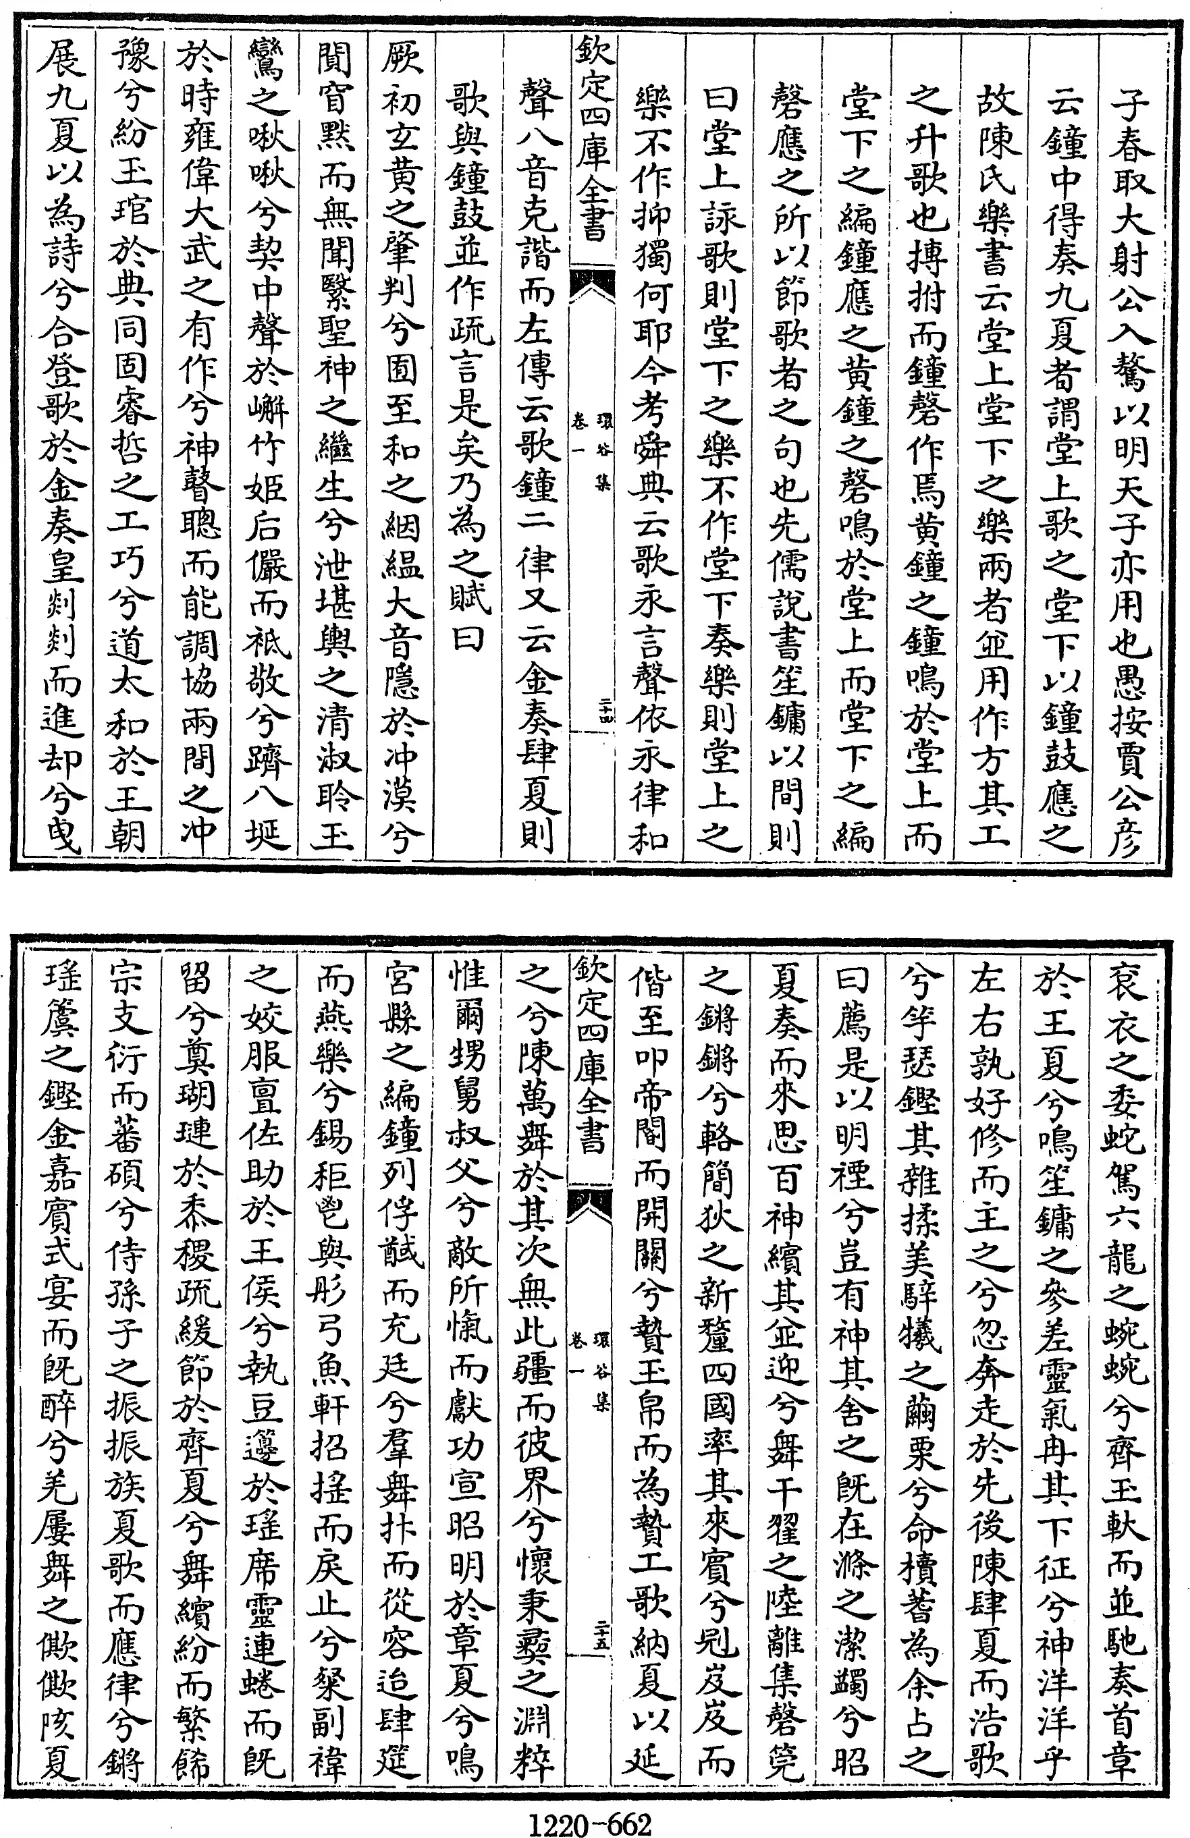 子春取大射公入驁以明天子亦用也愚按賈公彦
云鐘中得奏九夏者謂堂上歌之堂下以鐘鼓應之
故陳氏樂書云堂上堂下之樂兩者並用作方其工
之升歌也搏拊而鐘磬作焉黄鐘之鐘鳴於堂上而
堂下之編鐘應之黄鐘之磬鳴於堂上而堂下之編
磬應之所以節歌者之句也先儒說書笙鏞以間則
曰堂上詠歌則堂下之樂不作堂下奏樂則堂上之
樂不作抑獨何耶今考舜典云歌永言聲依永律和
欽定四庫全書
環谷集
卷一
二十四
聲八音克諧而左傳云歌鐘二律又云金奏肆夏則
歌與鐘鼓並作疏言是矣乃為之賦曰
厥初玄黄之肇判兮固至和之絪緼大音隱於冲漠兮
聞窅默而無聞繄聖神之繼生兮泄堪輿之清淑聆玉
鸞之啾啾兮契中聲於嶰竹姬后儼而祗敬兮躋八埏
於時雍偉大武之有作兮神瞽聰而能調協兩間之冲
豫兮紛玉琯於典同固睿哲之工巧兮道太和於王朝
展九夏以為詩兮合登歌於金奏皇剡剡而進却兮曳
袞衣之委蛇駕六龍之蜿蜿兮齊玉軑而並馳奏首章
於王夏兮鳴笙鏞之參差靈氣冉其下征兮神洋洋乎
左右孰好修而主之兮忽奔走於先後陳肆夏而浩歌
兮竽瑟鏗其雜揉美騂犧之繭栗兮命櫝蓍為余占之
曰薦是以明禋兮豈有神其舍之既在滌之潔蠲兮昭
夏奏而來思百神繽其並迎兮舞干翟之陸離集磬筦
之鏘鏘兮輅簡狄之新釐四國率其來賓兮剡岌岌而
偕至叩帝閽而開關兮贄玉帛而為贄工歌納夏以延
欽定四庫全書
環谷集
卷一
二十五
之兮陳萬舞於其次無此疆而彼界兮懷秉彞之淵粹
惟爾甥舅叔父兮敵所愾而獻功宣昭明於章夏兮鳴
宮縣之編鐘列俘馘而充廷兮羣舞抃而從容迨肆筵
而燕樂兮錫秬鬯與彤弓魚軒招搖而戾止兮粲副褘
之姣服亶佐助於王侯兮執豆籩於瑤席靈連蜷而既
留兮奠瑚璉於黍稷疏緩節於齊夏兮舞繽紛而繁飾
宗支衍而蕃碩兮侍孫子之振振族夏歌而應律兮鏘
瑤簴之鏗金嘉賓式宴而既醉兮羌屢舞之僛僛陔夏
1220-662